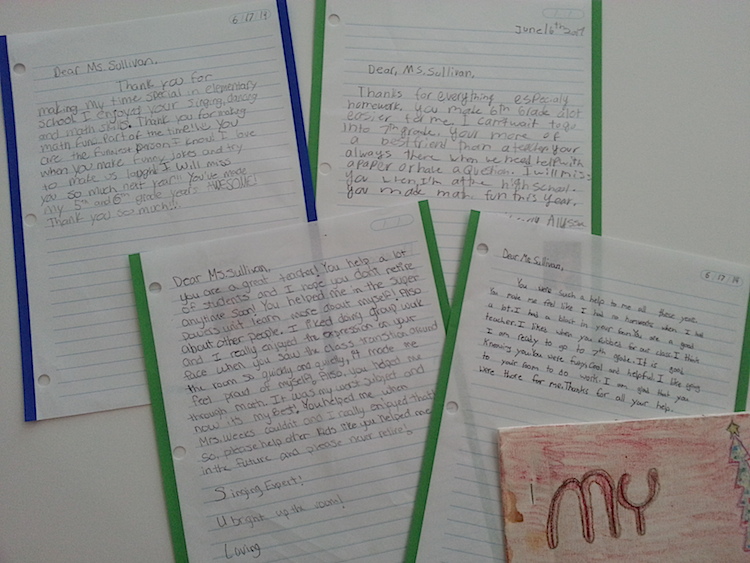 6/17/14
Dear Ms. Sullivan.
Thank you for
making my time special in elementary
school I enjoyed your singing, dancing
and math skills. Thank you for making
math fun! Part of the time! he You
are the funniest person I know I love
when you make funny jokes and try
to make us laugh! I will miss
you so much next year!! You've made
my 5th and 6th grade years AWESOME!
Thank you so much!!!
June 16th
Dear, Ms. Sullivan,
Thanks for everything especialy
homework. you make 6th Grade alot
easier for me I can't wait to go
into 7th grade. Your more of
a bestfriend then a teacher your
always there when we need help with
a paper or have a question. I will miss
you when I'm at the high school.
you made math fun this year.
Allyssa
Dear Ms. Sullivan,
you are a great teacher! You help a lot
of students and I hope you don't retire
anytime soon! You helped me in the super
powers unit learn more about myself! Also
about other people. I liked doing group work
and I really enjoyed the expression on your
face when you saw the class transition around
the room so quickly and quietly, it made me
feel proud of myself! Also, you helped me
through math. It was my worst subject and
now its my Best. You helped me when
Mrs. Weeks couldnt and I really enjoyed that!
So, please help other kids like you helped me
in the future and please never retire!
Singing Expert!
U bright up the room!
Loving
6/17/14
Dear Ms Sullivan,
You were such a help to me all these years.
You made me feel like I had no homework when I had
a lot. I had a blast in your room. You are a good
teacher. I liked when you subbed for our class. I think
I am ready to go to 7th grade. It is good
knowing you. You were funny, cool and helpful. I like going
to your room to do work. I am glad that you
were there for me. Thanks for all your help.
MY